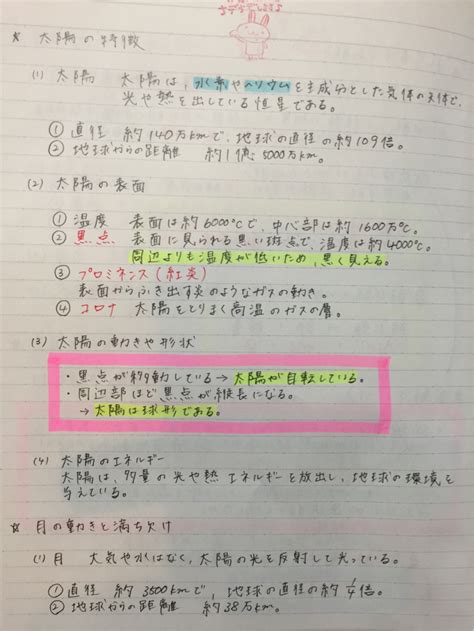 ☆ 太陽の特徴
(1) 太陽 太陽は、水素やヘリウムを主成分とした気体の天体で、
光や熱を出している恒星である。
① 直径 約140万kmで、地球の直径の約109倍。
② 地球からの距離 約1億5000万km。
(2) 太陽の表面
① 温度 表面は約6000℃で、中心部は約1600万℃。
② 黒点 表面に見られる黒い斑点で、温度は約4000℃。
周辺よりも温度が低いため、黒く見える。
③ プロミネンス(紅炎)
表面からふき出す炎のようなガスの動き。
④ コロナ 太陽をとりまく高温のガスの層。
(3) 太陽の動きや形状
・黒点が移動している→太陽が自転している。
・周辺部ほど黒点が縦長になる。
→太陽は球形である。
(4) 太陽のエネルギー
太陽は、多量の光や熱エネルギーを放出し、地球の環境を
与えている。
☆ 月の動きと満ち欠け
(1) 月 大気や水はなく、太陽の光を反射して光っている。
① 直径 約3500kmで、地球の直径の約1/4倍。
② 地球からの距離 約38万km。